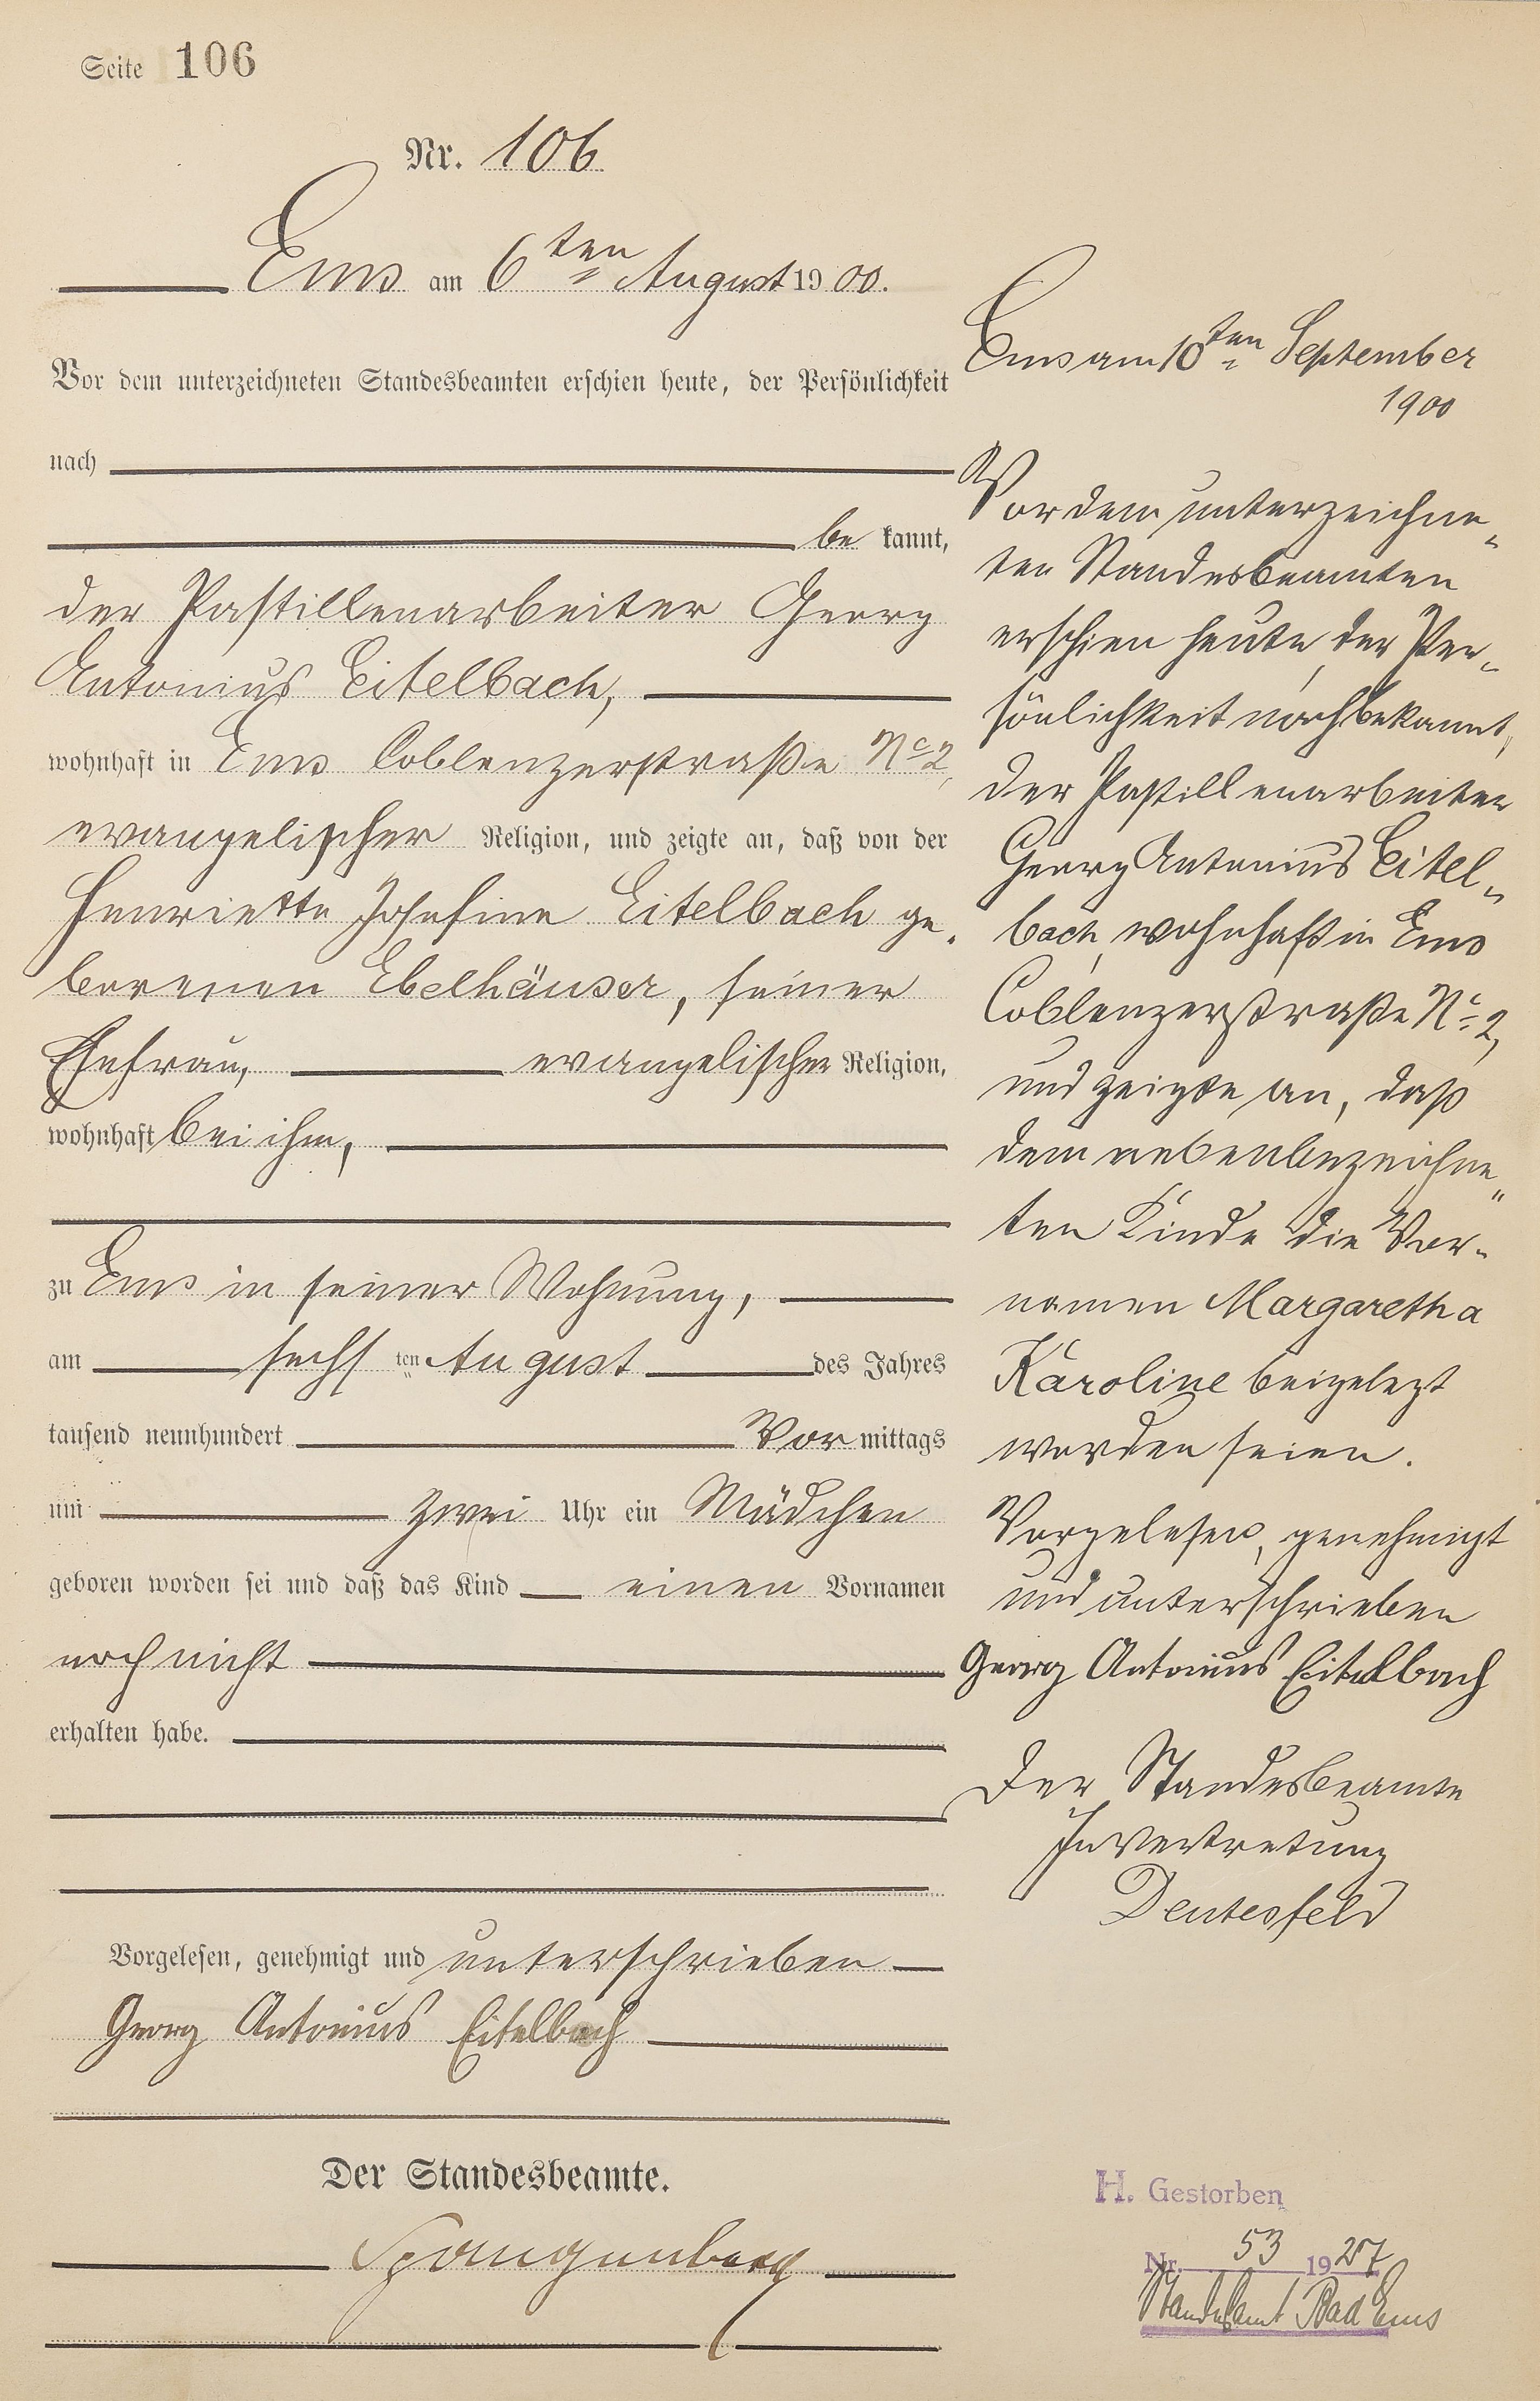 Seite 106
Nr. 106
Ems am 6ten August 1900.
Vor dem unterzeichneten Standesbeamten erschien heute, der Persönlichkeit
nach
be kannt,
der Pastillenarbeiter Georg
Antonius Eitelbach,
wohnhaft in Ems Coblenzerstraße No 2,
evangelischer Religion, und zeigte an, daß von der
Henriette Josefine Eitelbach ge-
borenen Ebelhäuser, seiner
Ehefrau, evangelischer Religion,
wohnhaft bei ihm,
zu Ems in seiner Wohnung,
am sechs ten August des Jahres
tausend neunhundert Vor mittags
um zwei Uhr ein Mädchen
geboren worden sei und daß das Kind einen Vornamen
noch nicht
erhalten habe.
Vorgelesen, genehmigt und unterschrieben
Georg Antonius Eitelbach
Der Standesbeamte.
Spangenberg
Ems am 10ten September
1900
Vor dem unterzeichne-
ten Standesbeamten
erschien heute, der Per-
sönlichkeit nach bekannt,
der Pastillenarbeiter
Georg Antonius Eitel-
bach, wohnhaft in Ems
Coblenzerstraße No 2,
und zeigte an, daß
dem nebenbezeichne-
ten Kinde die Vor-
namen Margaretha
Karoline beigelegt
worden seien.
Vorgelesen, genehmigt
und unterschrieben
Georg Antonius Eitelbach
Der Standesbeamte
In Vertretung
H. Gestorben
Nr. 53 1927
Standesamt Bad Ems